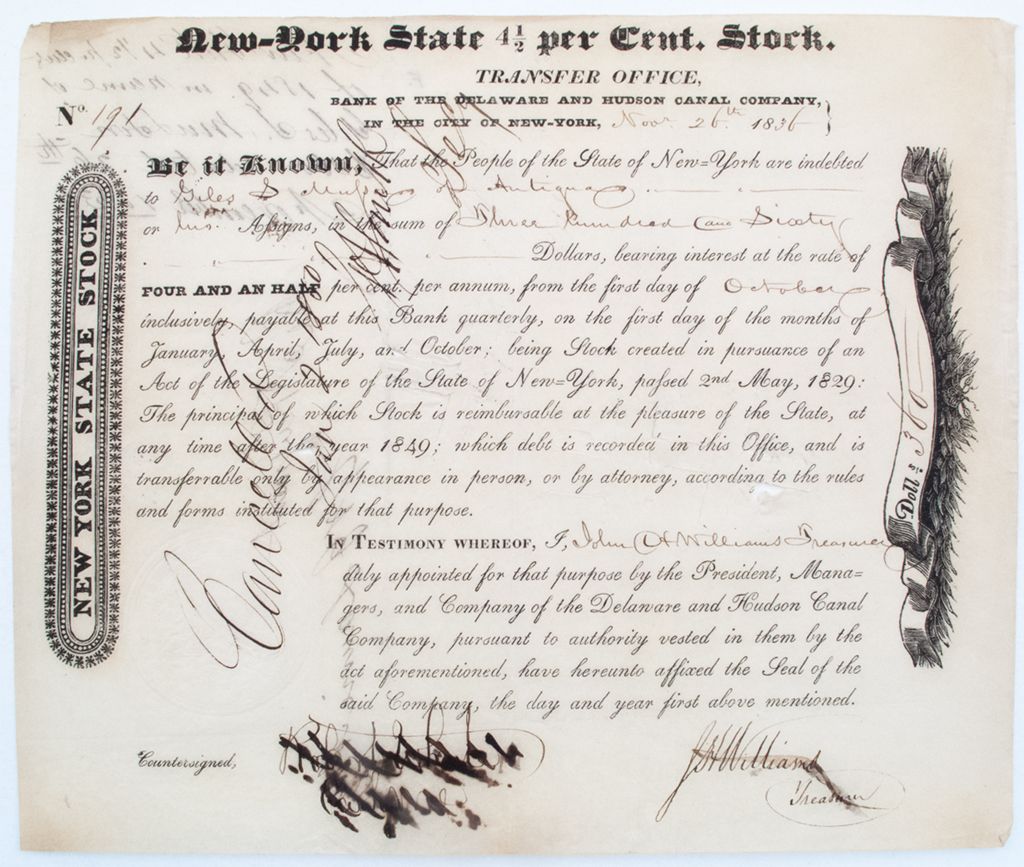 New-York State 4½ per Cent. Stock.
TRANSFER OFFICE,
BANK OF THE DELAWARE AND HUDSON CANAL COMPANY,
IN THE CITY OF NEW-YORK, Novr 26th 1836
No. 191
Be it Known, That the People of the State of New=York are indebted
to Giles S of Antigua
or his Assigns, in the sum of Three hundred and Sixty
Dollars, bearing interest at the rate of
FOUR AND AN HALF per cent. per annum, from the first day of October
inclusively, payable at this Bank quarterly, on the first day of the months of
January, April, July, and October; being Stock created in pursuance of an
Act of the Legislature of the State of New=York, passed 2nd May, 1829:
The principal of which Stock is reimbursable at the pleasure of the State, at
any time after the year 1849; which debt is recorded in this Office, and is
transferrable only by appearance in person, or by attorney, according to the rules
and forms instituted for that purpose.
In Testimony whereof, I, John H Williams Treasurer
duly appointed for that purpose by the President, Mana-
gers, and Company of the Delaware and Hudson Canal
Company, pursuant to authority vested in them by the
act aforementioned, have hereunto affixed the Seal of the
said Company, the day and year first above mentioned.
Countersigned,
J H Williams
Treasurer
NEW YORK STATE STOCK
Doll.s 360
Cancelled